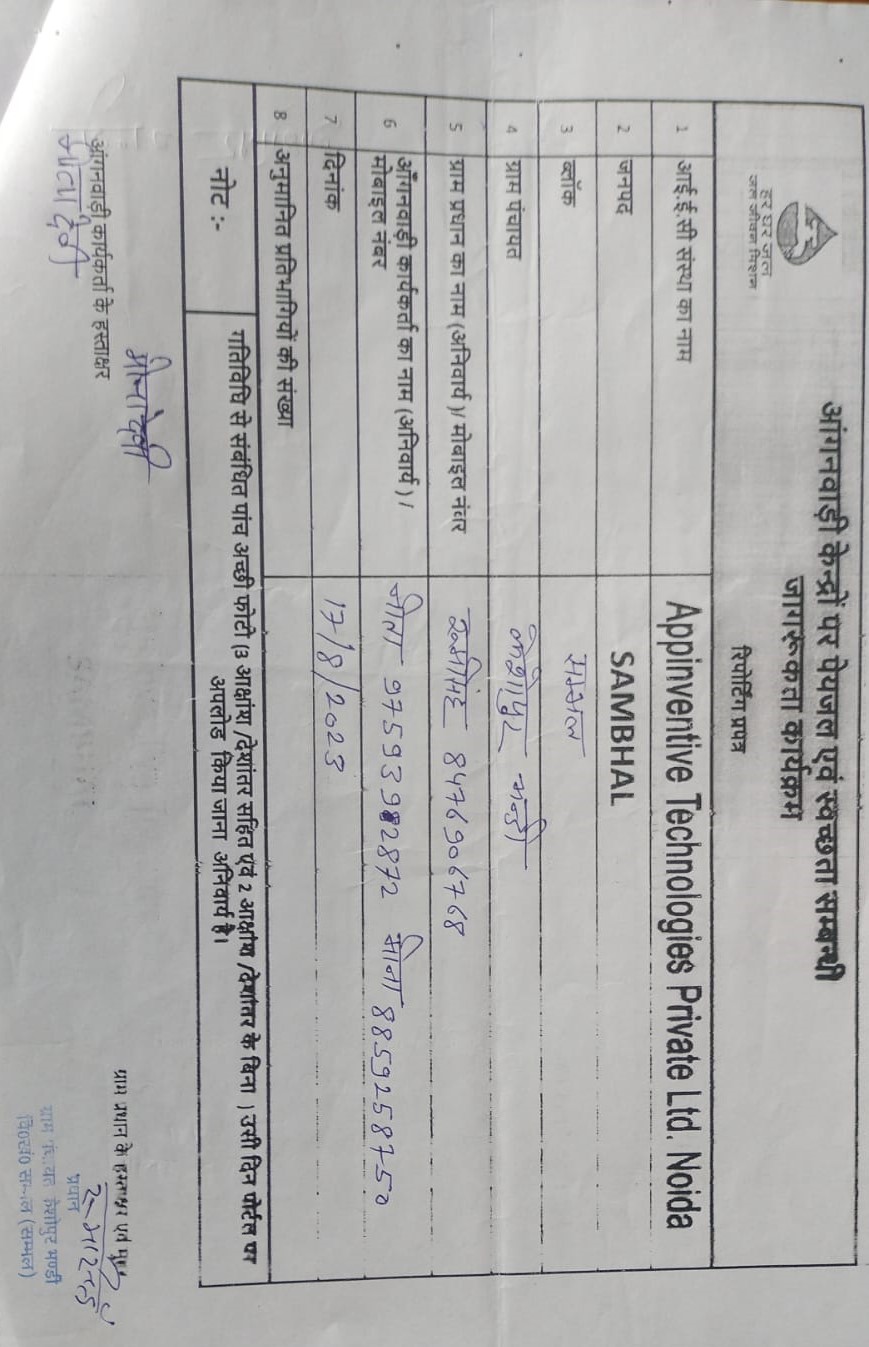 हर घर जल
जल जीवन मिशन
आंगनवाड़ी केन्द्रों पर पेयजल एवं स्वच्छता सम्बन्धी
जागरूकता कार्यक्रम
रिपोर्टिंग प्रपत्र
1 आई.ई.सी संस्था का नाम Appinventive Technologies Private Ltd. Noida
2 जनपद SAMBHAL
3 ब्लॉक सम्भल
4 ग्राम पंचायत केशोपुर भन्डी
5 ग्राम प्रधान का नाम (अनिवार्य )/ मोबाइल नंबर 8476906768
6 आँगनवाड़ी कार्यकर्ता का नाम (अनिवार्य ) /
मोबाइल नंबर
मीना 8859258750
7 दिनांक 17/8/2023
8 अनुमानित प्रतिभागियों की संख्या
नोट :-
गतिविधि से संबंधित पांच अच्छी फोटो (3 आक्षांश /देशांतर सहित एवं 2 आक्षांश /देशांतर के बिना ) उसी दिन पोर्टल पर
अपलोड किया जाना अनिवार्य है।
मीना देवी
आंगनवाड़ी कार्यकर्ता के हस्ताक्षर
ग्राम प्रधान के हस्ताक्षर एवं मुहर
प्रधान